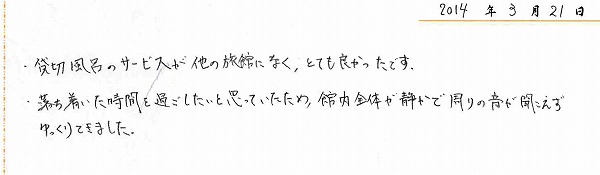 2014 年 3 月 21 日
・貸切風呂のサービスが他の旅館になく、とても良かったです。
・落ち着いた時間を過ごしたいと思っていたため、館内全体が静かで周りの音が聞こえず
ゆっくりできました。